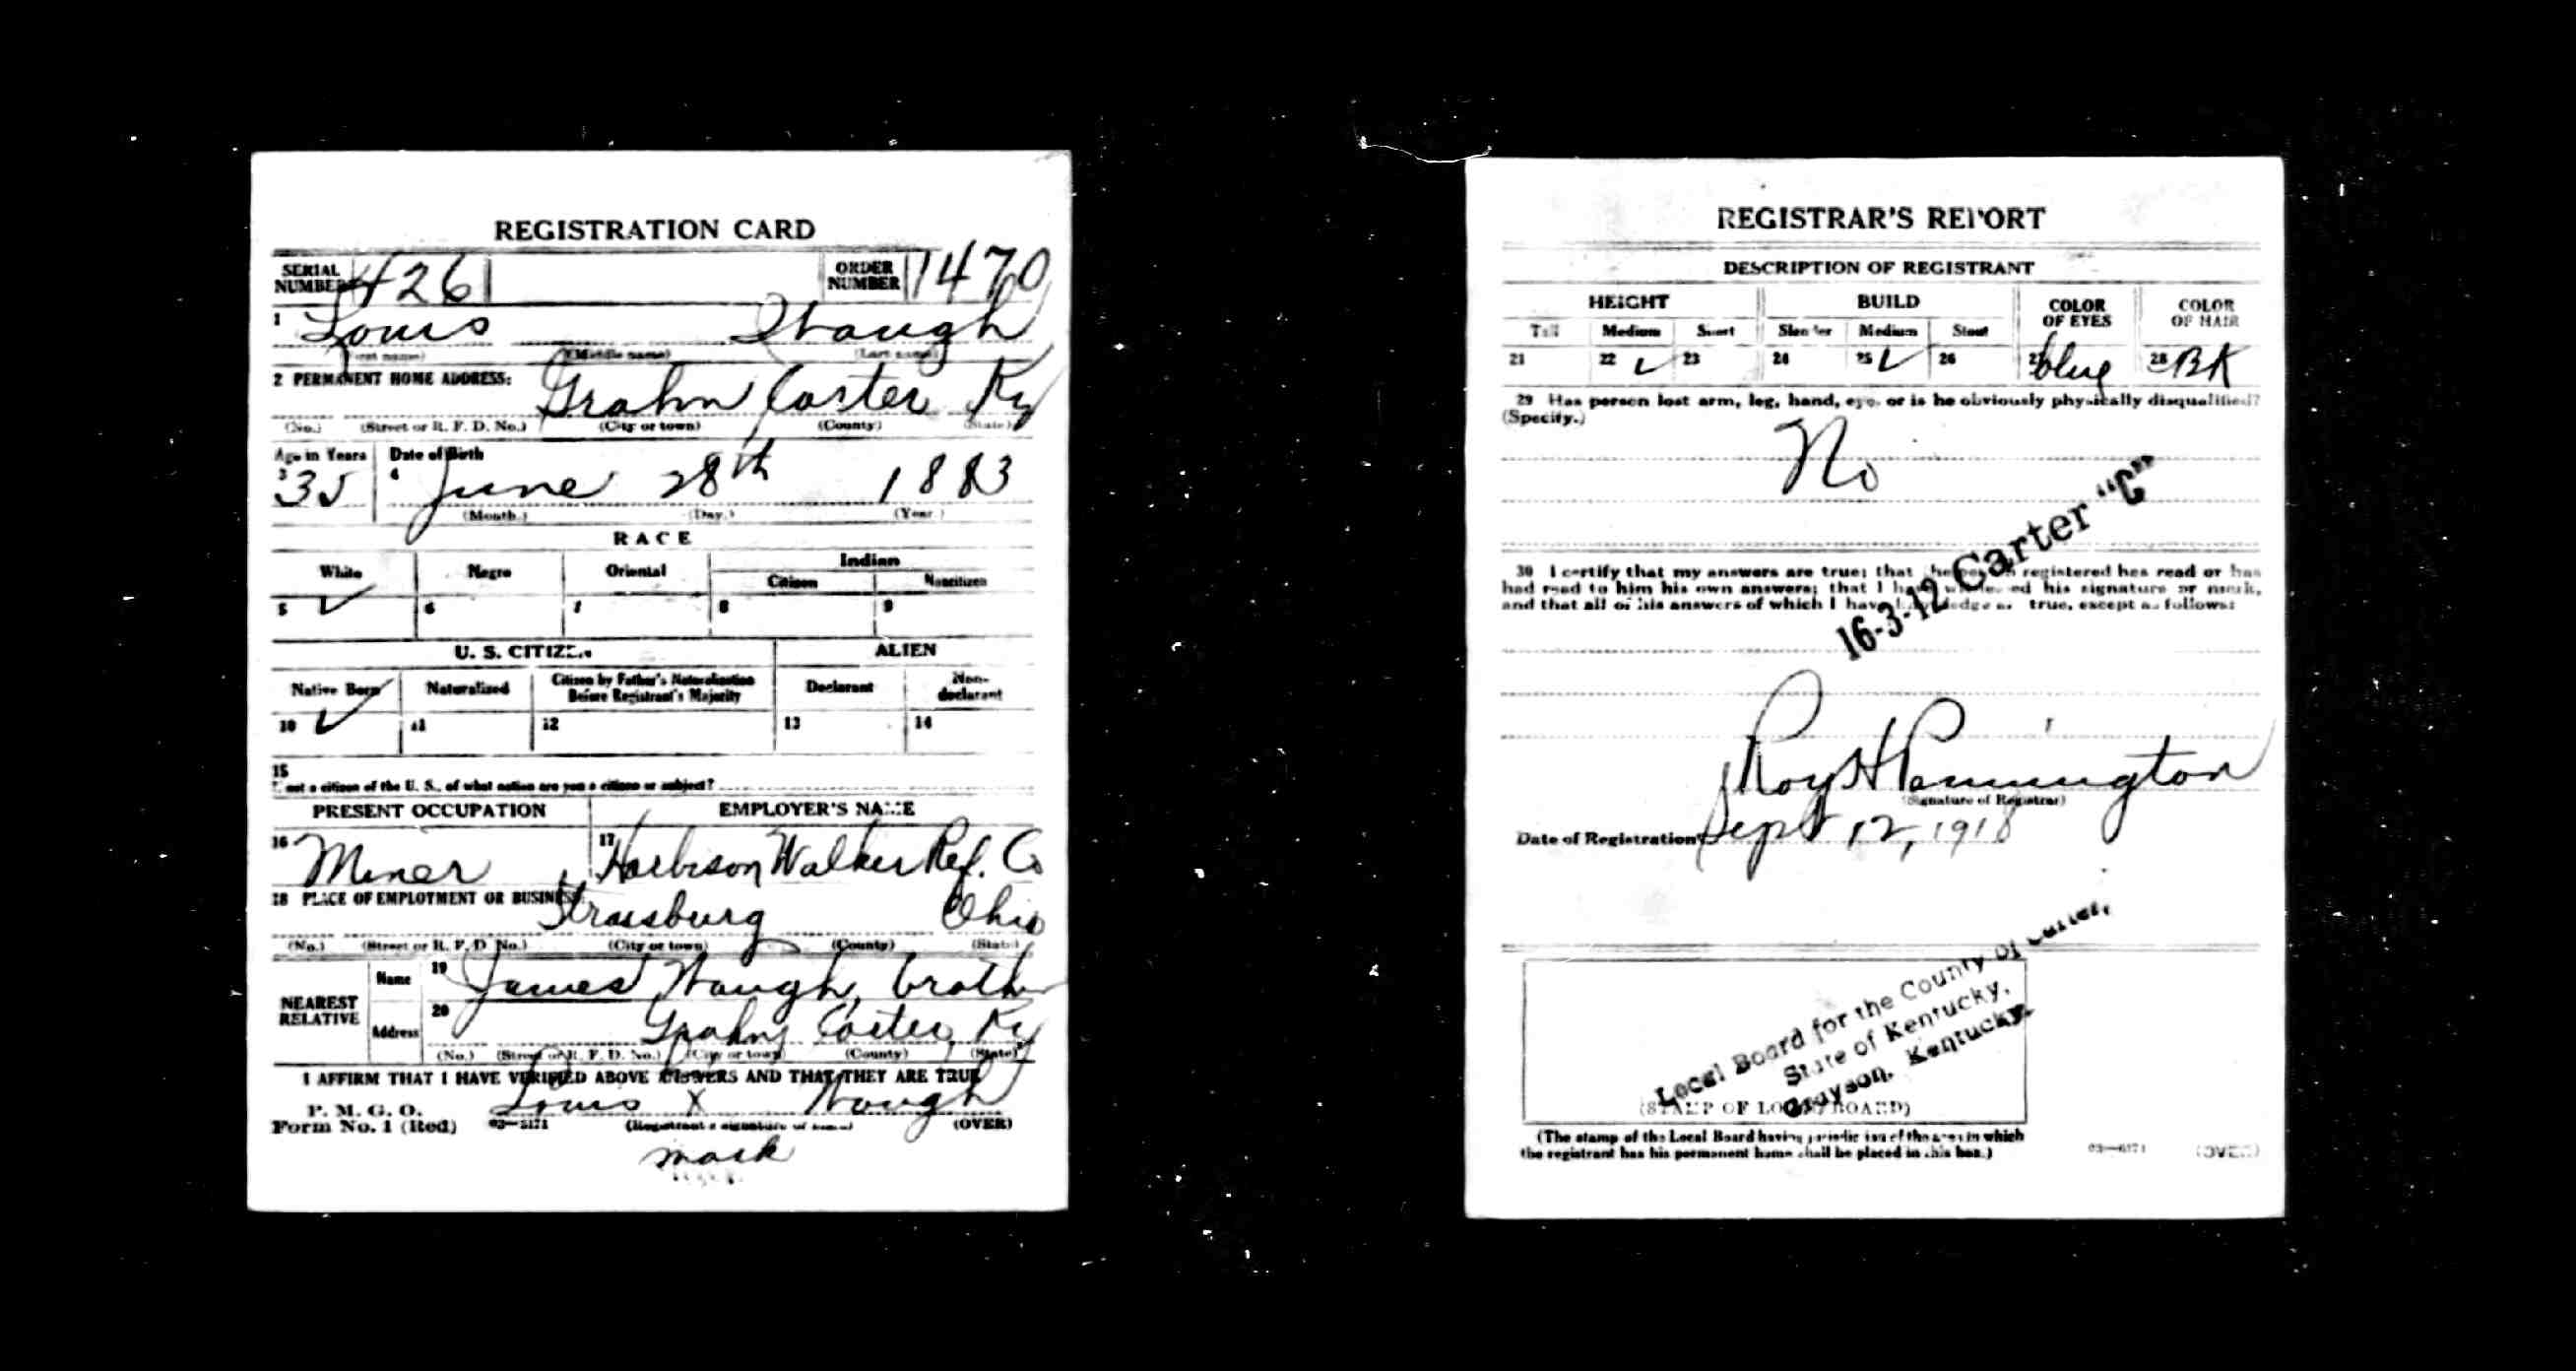 REGISTRATION CARD
SERIAL NUMBER 426 ORDER NUMBER 1470
1 Louis Waugh
(First name) (Middle name) (Last name)
2 PERMANENT HOME ADDRESS: Grahn Carter Ky
(No.) (Street or R. F. D. No.) (City or town) (County) (State)
Age in Years Date of Birth
3 35 4 June 28th 1883
(Month.) (Day.) (Year.)
RACE
White Negro Oriental Indian
Citizen Noncitizen
5 ✓ 6 7 8 9
U. S. CITIZEN ALIEN
Native Born Naturalized Citizen by Father's Naturalization Before Registrant's Majority Declarant Non-declarant
10 ✓ 11 12 13 14
15
If not a citizen of the U. S., of what nation are you a citizen or subject?
PRESENT OCCUPATION EMPLOYER'S NAME
16 Miner 17 Harbison Walker Ref. Co
18 PLACE OF EMPLOYMENT OR BUSINESS: Strasburg Ohio
(No.) (Street or R. F. D. No.) (City or town) (County) (State)
NEAREST RELATIVE Name 19 James Waugh, brother
Address 20 Grahn Carter, Ky
(No.) (Street or R. F. D. No.) (City or town) (County) (State)
I AFFIRM THAT I HAVE VERIFIED ABOVE ANSWERS AND THAT THEY ARE TRUE
P. M. G. O.
Form No. 1 (Red) 03—6171 Louis X Waugh
(Registrant's signature or mark) (OVER)
mark
REGISTRAR'S REPORT
DESCRIPTION OF REGISTRANT
HEIGHT BUILD COLOR OF EYES COLOR OF HAIR
Tall Medium Short Slender Medium Stout
21 22 ✓ 23 24 25 ✓ 26 27 blue 28 BK
29 Has person lost arm, leg, hand, eye, or is he obviously physically disqualified?
(Specify.)
No
16-3-12 Carter "C"
30 I certify that my answers are true; that the person registered has read or has
had read to him his own answers; that I have witnessed his signature or mark,
and that all of his answers of which I have knowledge are true, except as follows:
Roy H Pennington
(Signature of Registrar)
Date of Registration Sept 12, 1918
Local Board for the County of Carter,
State of Kentucky,
Grayson, Kentucky.
(STAMP OF LOCAL BOARD)
(The stamp of the Local Board having jurisdiction of the area in which
the registrant has his permanent home shall be placed in this box.)
03—6171 (OVER)